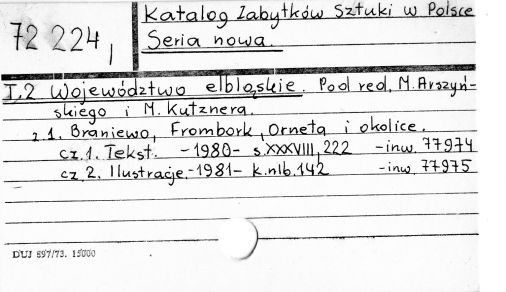 72 224,
Katalog Zabytków Sztuki w Polsce
Seria nowa.
I,2 Województwo elbląskie. Pod red. M. Arszyń-
skiego i M. Kutznera.
z.1. Braniewo, Frombork, Orneta i okolice.
cz.1. Tekst. -1980- s.XXXVIII, 222 -inw. 77974
cz.2. Ilustracje.-1981- k.nlb.142 -inw. 77975
DUJ 697/73. 15000